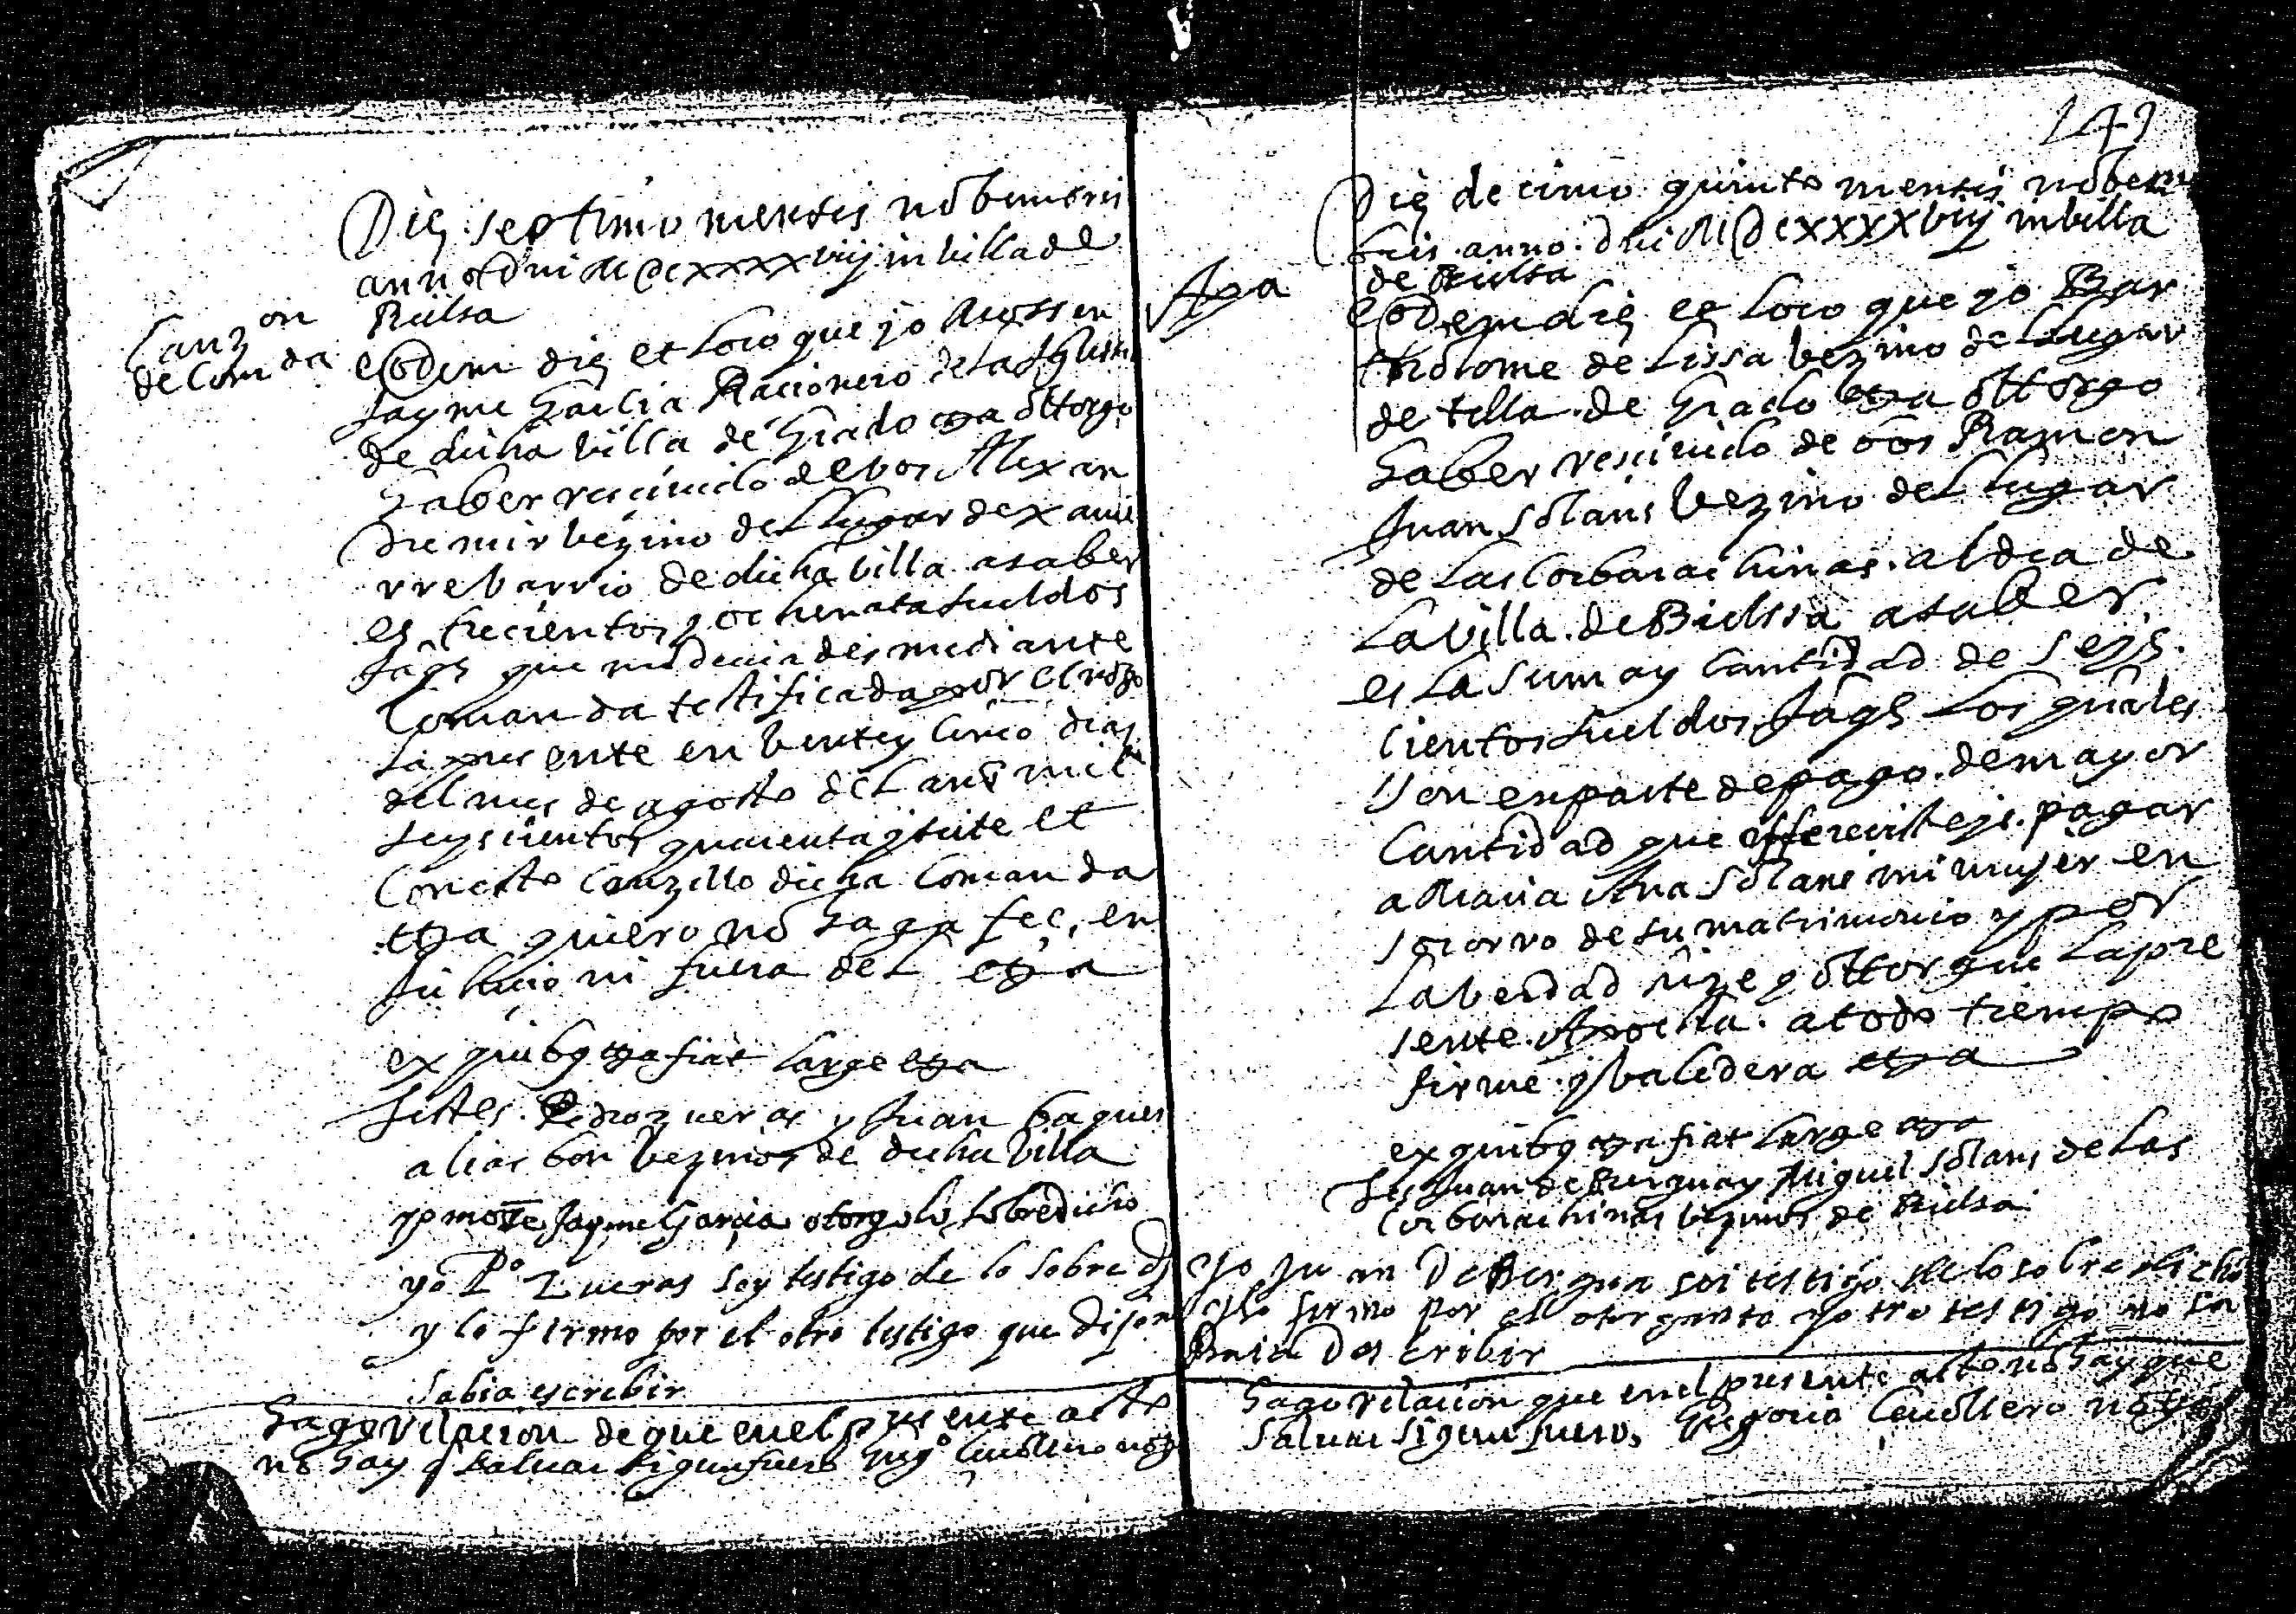 Die septimo mensis nobembris
anno Dni MDCxxxxviij in villa de
Bielsa
Canzon
de Comanda
eodem die et loco que yo Mossen
Jayme Garcia Racionero de la Yglesia
de dicha villa de Grado etta ottorgo
haber rescivido de vos Alexan
dre mir bezino del lugar de xauie
rre barrio de dicha villa a saber
es trecientos y ochenata sueldos
Jaqs que me deuiades mediante
Comanda testificada por el noto
la presente en beinte y Cinco dias
del mes de agosto del año mil
seyscientos quarenta y siete et
Con esto Canzello dicha Comanda
etta quiero no haga fee, en
Juhicio ni fuera del etta
ex quibq etta fiat large etta
testes Pedro zueras y Juan bagues
alias bon bezinos de dicha villa
yo mose Jayme Garcia otorgo lo sobredicho
yo Po Zueras soy testigo de lo sobre dj
y lo firmo por el otro testigo que dijo no
sabia escrebir
Hago relacion de que en el presente acto
no hay q saluar sigun fuero Grego Cauollero noto
149
Die decimo quinto mensis nobem
bris anno dni MDCxxxxviij in villa
de Bielsa
Apa
eodem die et loco que yo Bar
tholome de Lissa bezino del lugar
de tella de Grado etta ottorgo
haber rescivido de bos Ramon
Juan Solans bezino del lugar
de las Corbarachinas aldea de
la villa de Bielssa a saber
es la suma y Cantidad de seys
cientos sueldos Jaqs los quales
son en parte de pago de mayor
Cantidad que offrecisteys pagar
a Maria Ana Solans mi mujer en
socorro de su matrimonio y por
la berdad hize y ottorgue la pre
sente Apocha a todo tiempo
firme y baledera etta
ex quibq etta fiat large etta
tes Juan de Bergua y Miguel Solans de las
Corbarachinas bezinos de Bielsa
yo Juan De Bergua soi testigo de lo sobre dicho
y lo firmo por el otorgante y otro testigo no sa
bia Des cribir
Hago relacion que en el presente acto no hay que
saluar sigun fuero, Gregorio Cauollero noto